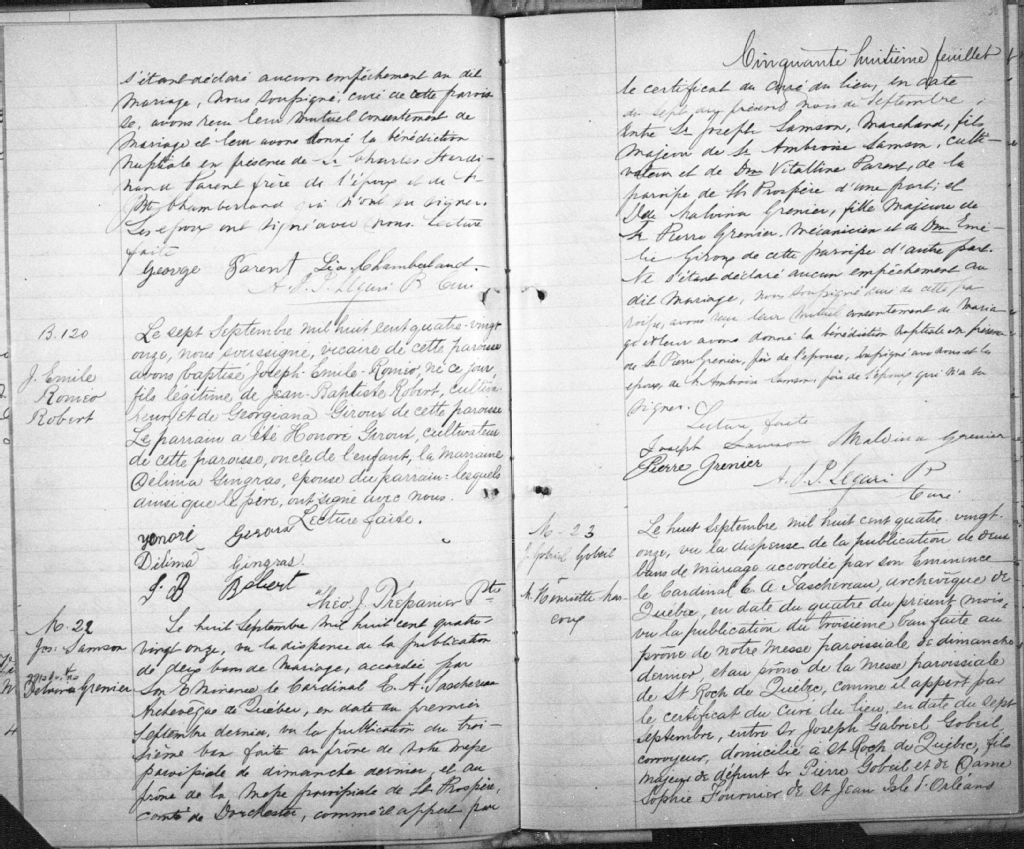 s'étant déclaré aucun empêchement au dit
mariage, nous soussigné, curé de cette parois
se, avons reçu leur mutuel consentement de
mariage et leur avons donné la bénédiction
nuptiale en présence de Sr Charles Ferdi-
nand Parent frère de l'époux et de
Chamberland qui n'ont su signer.
Les époux ont signé avec nous. Lecture
faite
George Parent Léa Chamberland.
A. O. P. Légaré Ptre Curé
B. 120
J. Emile
Romeo
Robert
Le sept Septembre mil huit cent quatre-vingt
onze, nous soussigné, vicaire de cette paroisse
avons baptisé Joseph-Emile-Romeo, né ce jour,
fils légitime de Jean-Baptiste Robert, cultiva-
teur, et de Georgiana Giroux de cette paroisse
Le parrain a été Honoré Giroux, cultivateur
de cette paroisse, oncle de l'enfant, la marraine
Delima Gingras, epouse du parrain: lesquels
ainsi que le père, ont signé avec nous.
Lecture faite.
Honoré Giroux
Délima Gingras
J. B Robert
Théo J. Trépanier Ptre
M. 22
Jos. Samson
&
Malvina Grenier
Le huit Septembre mil huit cent quatre-
vingt onze, vu la dispense de la publication
de deux bans de mariage, accordée par
Son Eminence le Cardinal E. A. Taschereau
Archevêque de Québec, en date du premier
Septembre dernier, vu la publication du troi-
sième ban faite au prône de notre messe
paroissiale de dimanche dernier, et au
prône de la Messe paroissiale de St Prosper,
comté de Dorchester, comme il appert par
Cinquante huitième feuillet
le certificat du curé du lieu, en date
du sept du présent mois de Septembre,
entre Sr Joseph Samson, Marchand, fils
majeur de Sr Ambroise Samson, culti-
vateur et de Dme Vitalline Parent, de la
paroisse de St Prospère d'une part; et
Delle Malvina Grenier, fille majeure de
Sr Pierre Grenier, mécanicien et de Dme Emé-
lie Giroux de cette paroisse d'autre part.
Ne s'étant déclaré aucun empêchement au
dit mariage, nous soussigné curé de cette pa
roisse, avons reçu leur mutuel consentement de maria-
ge et leur avons donné la bénédiction nuptiale en présence
de Sr Pierre Grenier, père de l'épouse, soussigné avec nous et les
époux, de Sr Ambroise Samson, père de l'époux qui n'a su
signer.
Lecture faite
Joseph Samson Malvina Grenier
Pierre Grenier
A. O. P. Légaré P
Curé
M. 23
J. Gabriel Gobeil
M. Henriette
coux
Le huit Septembre mil huit cent quatre-vingt-
onze, vu la dispense de la publication de deux
bans de mariage accordée par son Eminence
le Cardinal E. A. Taschereau, archevêque de
Québec, en date du quatre du présent mois,
vu la publication du troisième ban faite au
prône de notre Messe paroissiale de dimanche
dernier, et au prône de la Messe paroissiale
de St Roch de Québec, comme il appert par
le certificat du curé du lieu, en date du sept
Septembre, entre Sr Joseph Gabriel Gobeil,
corroyeur, domicilié à St Roch de Québec, fils
majeur de défunt Sr Pierre Gobeil et de Dame
Sophie Fournier de St Jean Isle d'Orléans